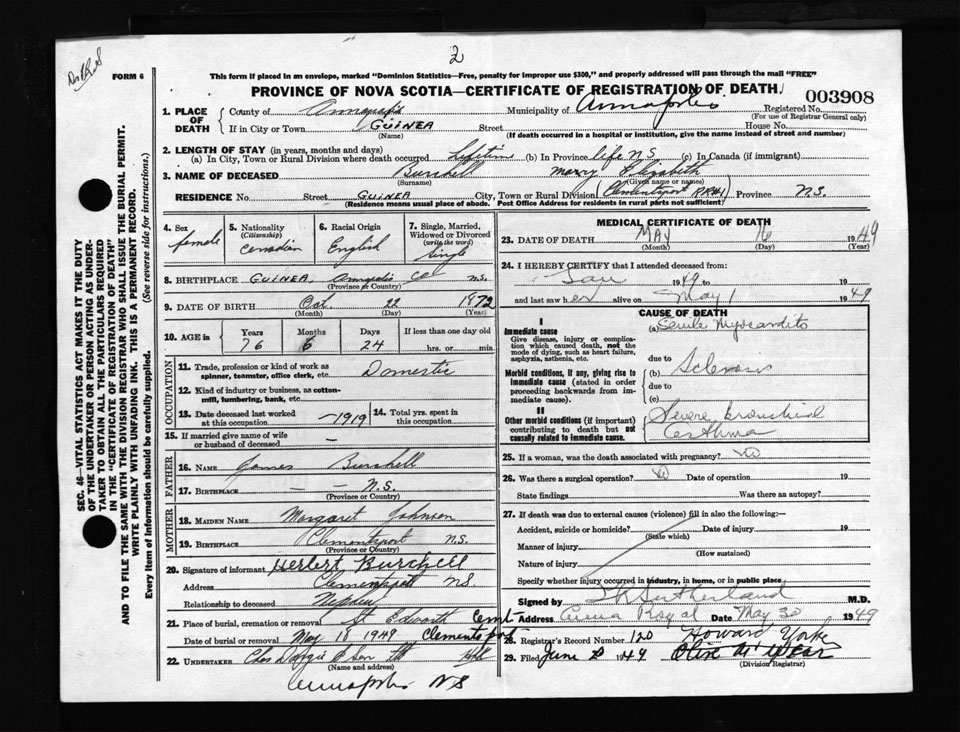 2
FORM 6
This form if placed in an envelope, marked "Dominion Statistics—Free, penalty for improper use $300," and properly addressed will pass through the mail "FREE"
PROVINCE OF NOVA SCOTIA—CERTIFICATE OF REGISTRATION OF DEATH
003908
1. PLACE OF DEATH County of Annapolis Municipality of Annapolis Registered No.
(For use of Registrar General only)
If in City or Town GUINEA Street House No.
(Name) (If death occurred in a hospital or institution, give the name instead of street and number)
2. LENGTH OF STAY (in years, months and days)
(a) In City, Town or Rural Division where death occurred Lifetime (b) In Province life NS (c) In Canada (if immigrant)
3. NAME OF DECEASED Burchell Mary Elizabeth
(Surname) (Given name or names)
RESIDENCE No. Street GUINEA City, Town or Rural Division (Clementsport RR#1) Province N.S.
(Residence means usual place of abode. Post Office Address for residents in rural parts not sufficient)
4. Sex female
5. Nationality (Citizenship) Canadian
6. Racial Origin English
7. Single, Married, Widowed or Divorced (write the word) Single
8. BIRTHPLACE GUINEA, Annapolis Co N.S.
(Province or Country)
9. DATE OF BIRTH Oct 22 1872
(Month) (Day) (Year)
10. AGE in Years 76 Months 6 Days 24 If less than one day old hrs. or min.
OCCUPATION
11. Trade, profession or kind of work as spinner, teamster, office clerk, etc. Domestic
12. Kind of industry or business, as cotton-mill, lumbering, bank, etc.
13. Date deceased last worked at this occupation 1919
14. Total yrs. spent in this occupation
15. If married give name of wife or husband of deceased —
FATHER
16. NAME James Burchell
17. BIRTHPLACE — — N.S.
(Province or Country)
MOTHER
18. MAIDEN NAME Margaret Johnson
19. BIRTHPLACE Clementsport N.S.
(Province or Country)
20. Signature of informant Herbert Burchell
Address Clementsport NS.
Relationship to deceased Nephew
21. Place of burial, cremation or removal St Edwards Cemt
Date of burial or removal May 18 1949 Clementsport
22. UNDERTAKER Chas Dargie & Son Ltd
(Name and address)
Annapolis NS
MEDICAL CERTIFICATE OF DEATH
23. DATE OF DEATH MAY 16 1949
(Month) (Day) (Year)
24. I HEREBY CERTIFY that I attended deceased from:
Jan 1949 to 19
and last saw her alive on May 1 1949
CAUSE OF DEATH
I
Immediate cause
Give disease, injury or complication which caused death, not the mode of dying, such as heart failure, asphyxia, asthenia, etc.
(a) Senile Myocarditis
due to
Morbid conditions, if any, giving rise to immediate cause (stated in order proceeding backwards from immediate cause).
(b) Sclerosis
due to
(c)
II
Other morbid conditions (if important) contributing to death but not causally related to immediate cause.
Severe bronchial
asthma
25. If a woman, was the death associated with pregnancy? No
26. Was there a surgical operation? No Date of operation 19
State findings Was there an autopsy?
27. If death was due to external causes (violence) fill in also the following:—
Accident, suicide or homicide? Date of injury 19
(State which)
Manner of injury
(How sustained)
Nature of injury
Specify whether injury occurred in industry, in home, or in public place
Signed by Sutherland M.D.
Address Anna Royal Date May 30 1949
28. Registrar's Record Number 120 Howard Yorke
29. Filed June 2 1949 Olive M. Wear
(Division Registrar)
SEC. 46—VITAL STATISTICS ACT MAKES IT THE DUTY
OF THE UNDERTAKER OR PERSON ACTING AS UNDERTAKER TO OBTAIN ALL THE PARTICULARS REQUIRED
IN THE "CERTIFICATE OF REGISTRATION OF DEATH"
AND TO FILE THE SAME WITH THE DIVISION REGISTRAR WHO SHALL ISSUE THE BURIAL PERMIT.
WRITE PLAINLY WITH UNFADING INK. THIS IS A PERMANENT RECORD.
Every item of information should be carefully supplied. (See reverse side for instructions.)